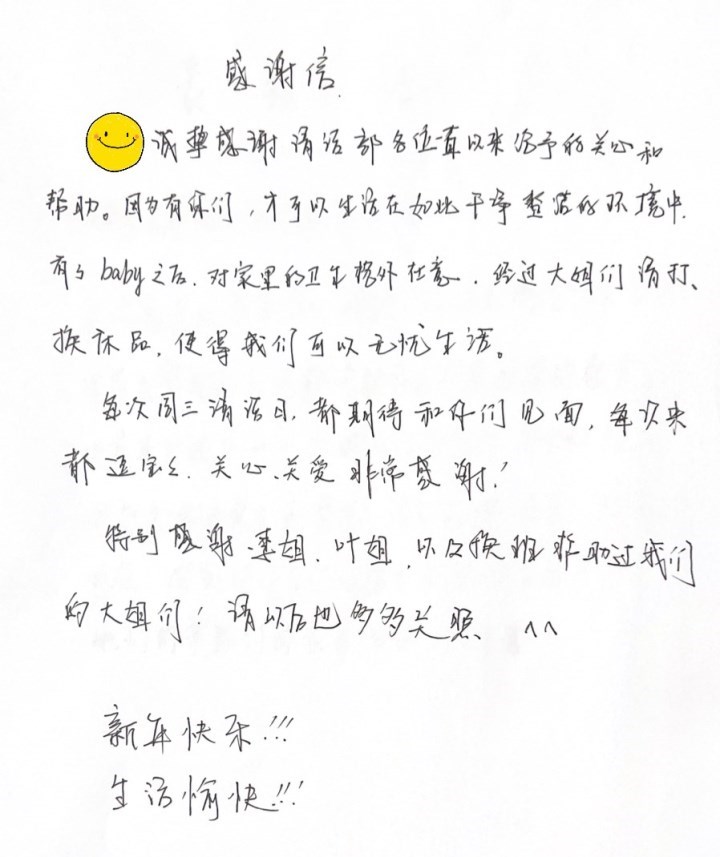 感谢信
诚挚感谢清洁部各位一直以来给予的关心和
帮助。因为有你们，才可以生活在如此干净整洁的环境中.
有了baby之后.对家里的卫生格外在意.经过大姐们清扫、
换床品.使得我们可以无忧生活。
每次周三清洁日.都期待和你们见面.每次来
都逗宝宝.关心、关爱非常感谢!
特别感谢 李姐.叶姐.以及换班帮助过我们
的大姐们！请以后也多多关照 ^^
新年快乐!!!
生活愉快!!!